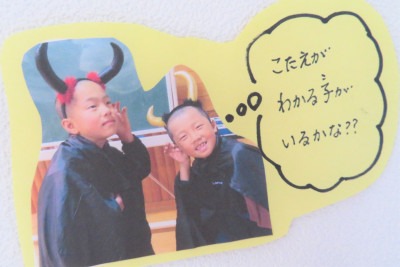 こたえが
わかる子が
いるかな??